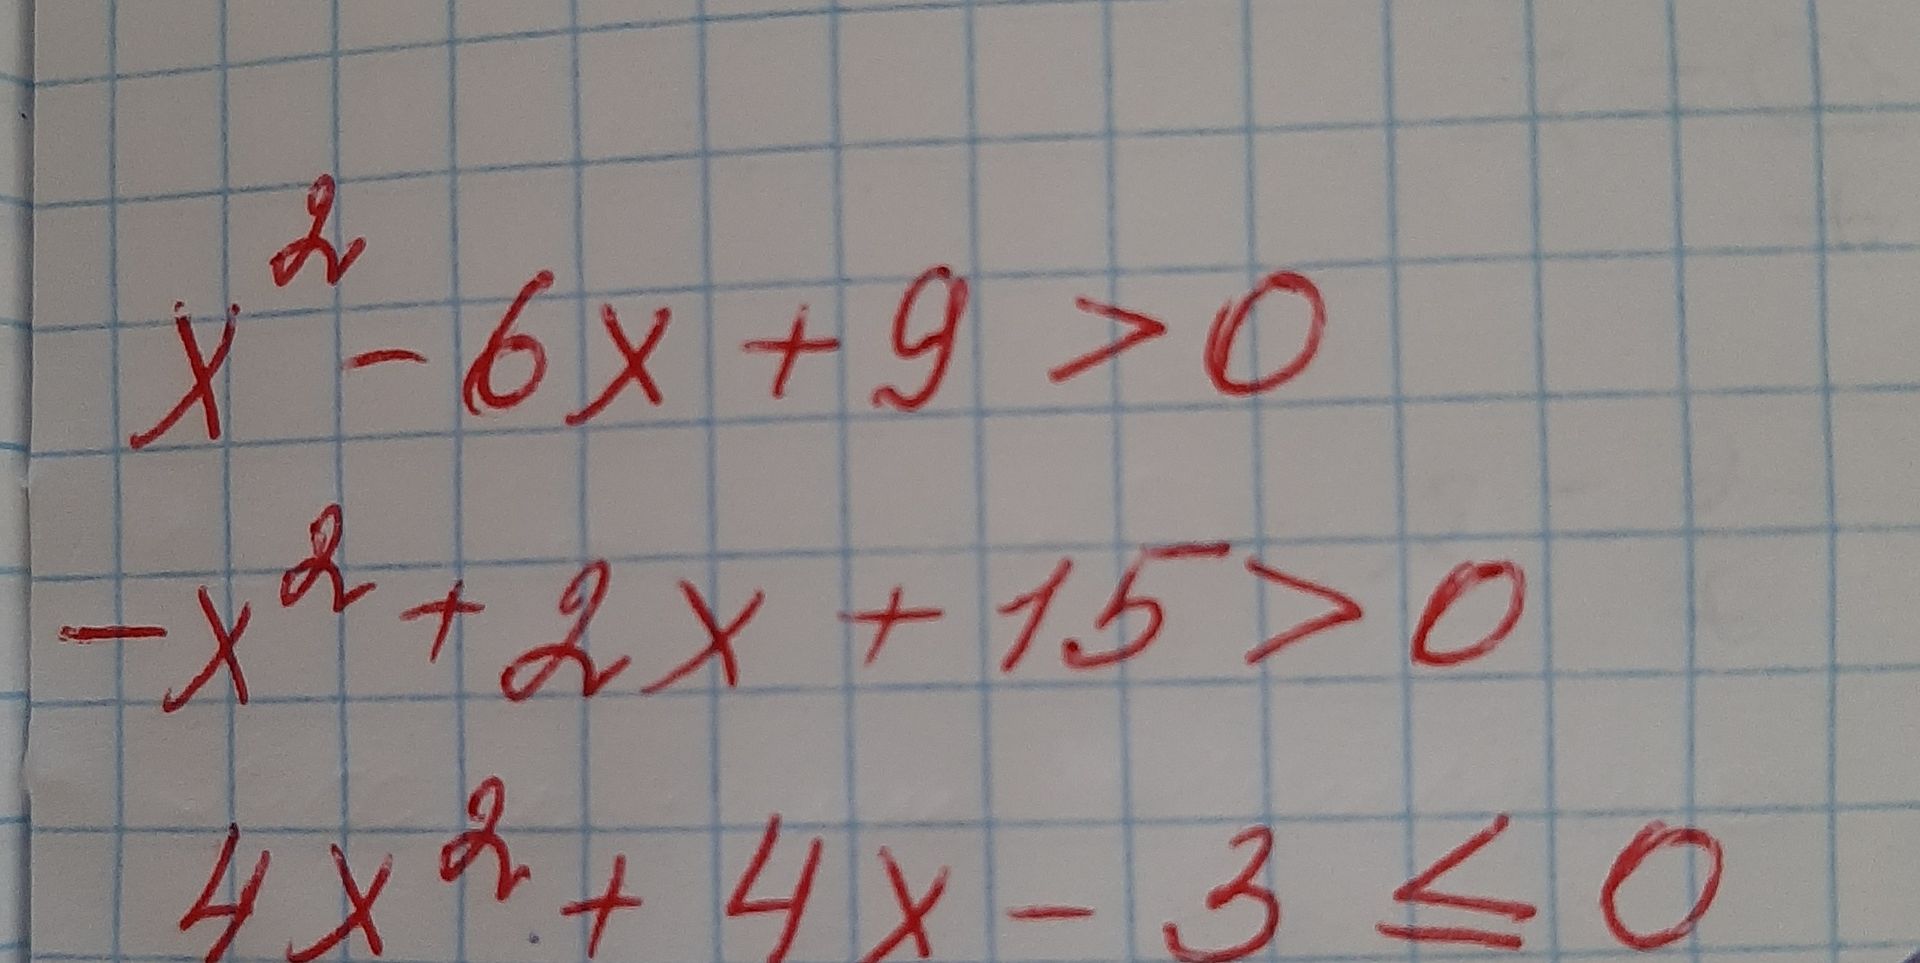 x² - 6x + 9 > 0
-x² + 2x + 15 > 0
4x² + 4x - 3 ≤ 0